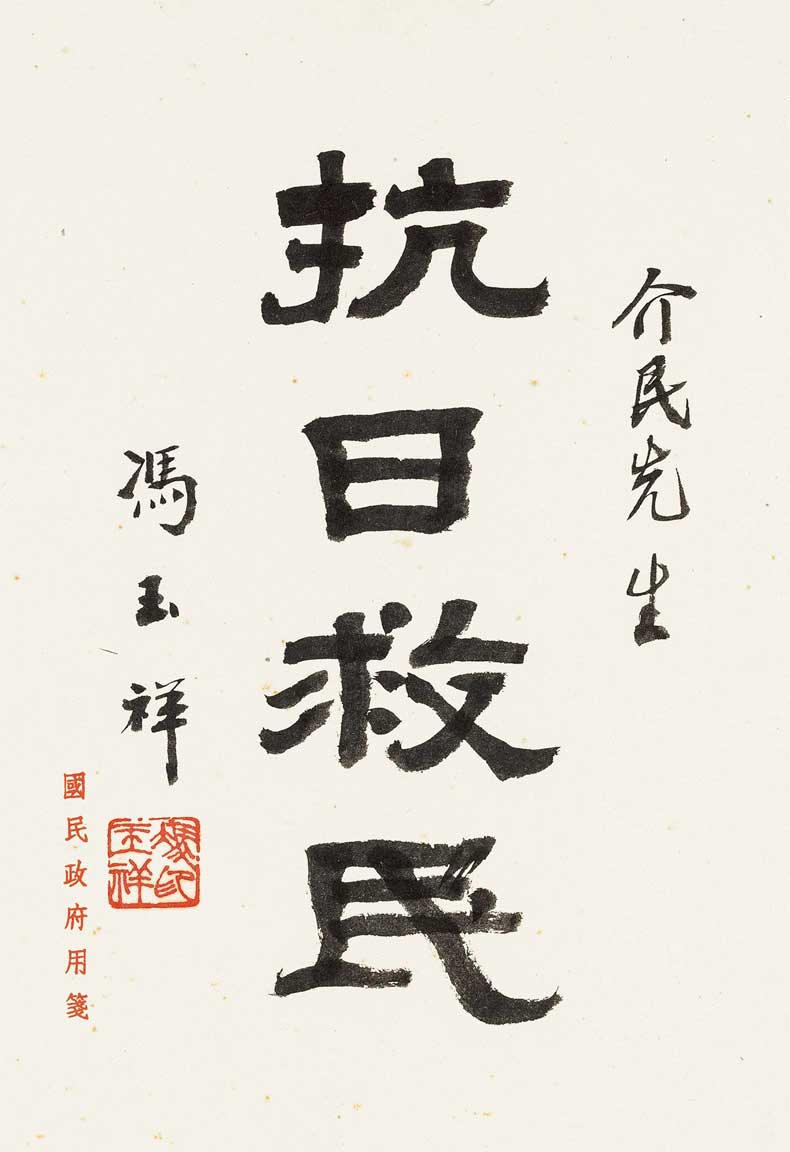 介民先生
抗日救民
馮玉祥
馮玉祥印
國民政府用箋